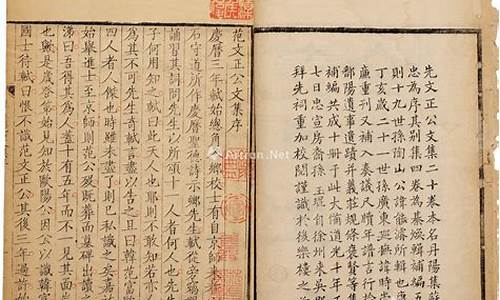 先文正公文集二十卷本名丹陽集蘇
忠為序其別集四卷為綦煥輯補五
則十九世孫陶山公諱能濬所
丁亥歲二十一世孫廣東巡撫諱時崇
廉重刊又補入奏議尺牘年譜言行
鄱陽遺事遺蹟并義莊規條褒賢等
補編共成四十八卷於此大備道光十年
七日忠宣房裔孫玉琨自徐州來吳
拜先祠重加校閱謹識於後樂樓之
范文正公文集序
慶曆三年軾始總角入鄉校士有自京師來
石守道所作慶曆聖德詩示鄉先生軾從旁竊觀
誦習其詞問先生以所頌十一人者何人也先生
子何用知之軾曰此天人也耶則不敢知若亦
為其不可先生奇軾言盡以告之且曰韓范富
四人者人傑也時雖未盡了則已私識之矣嘉
始舉進士至京師則范公歿既葬而墓碑出讀之
涕曰吾得其為人蓋十有五年而不一見其面豈
也歟是歲登第始見知於歐陽公因公以識韓富
國士待軾曰恨不識范文正公其後三年過許始
Artron.Net